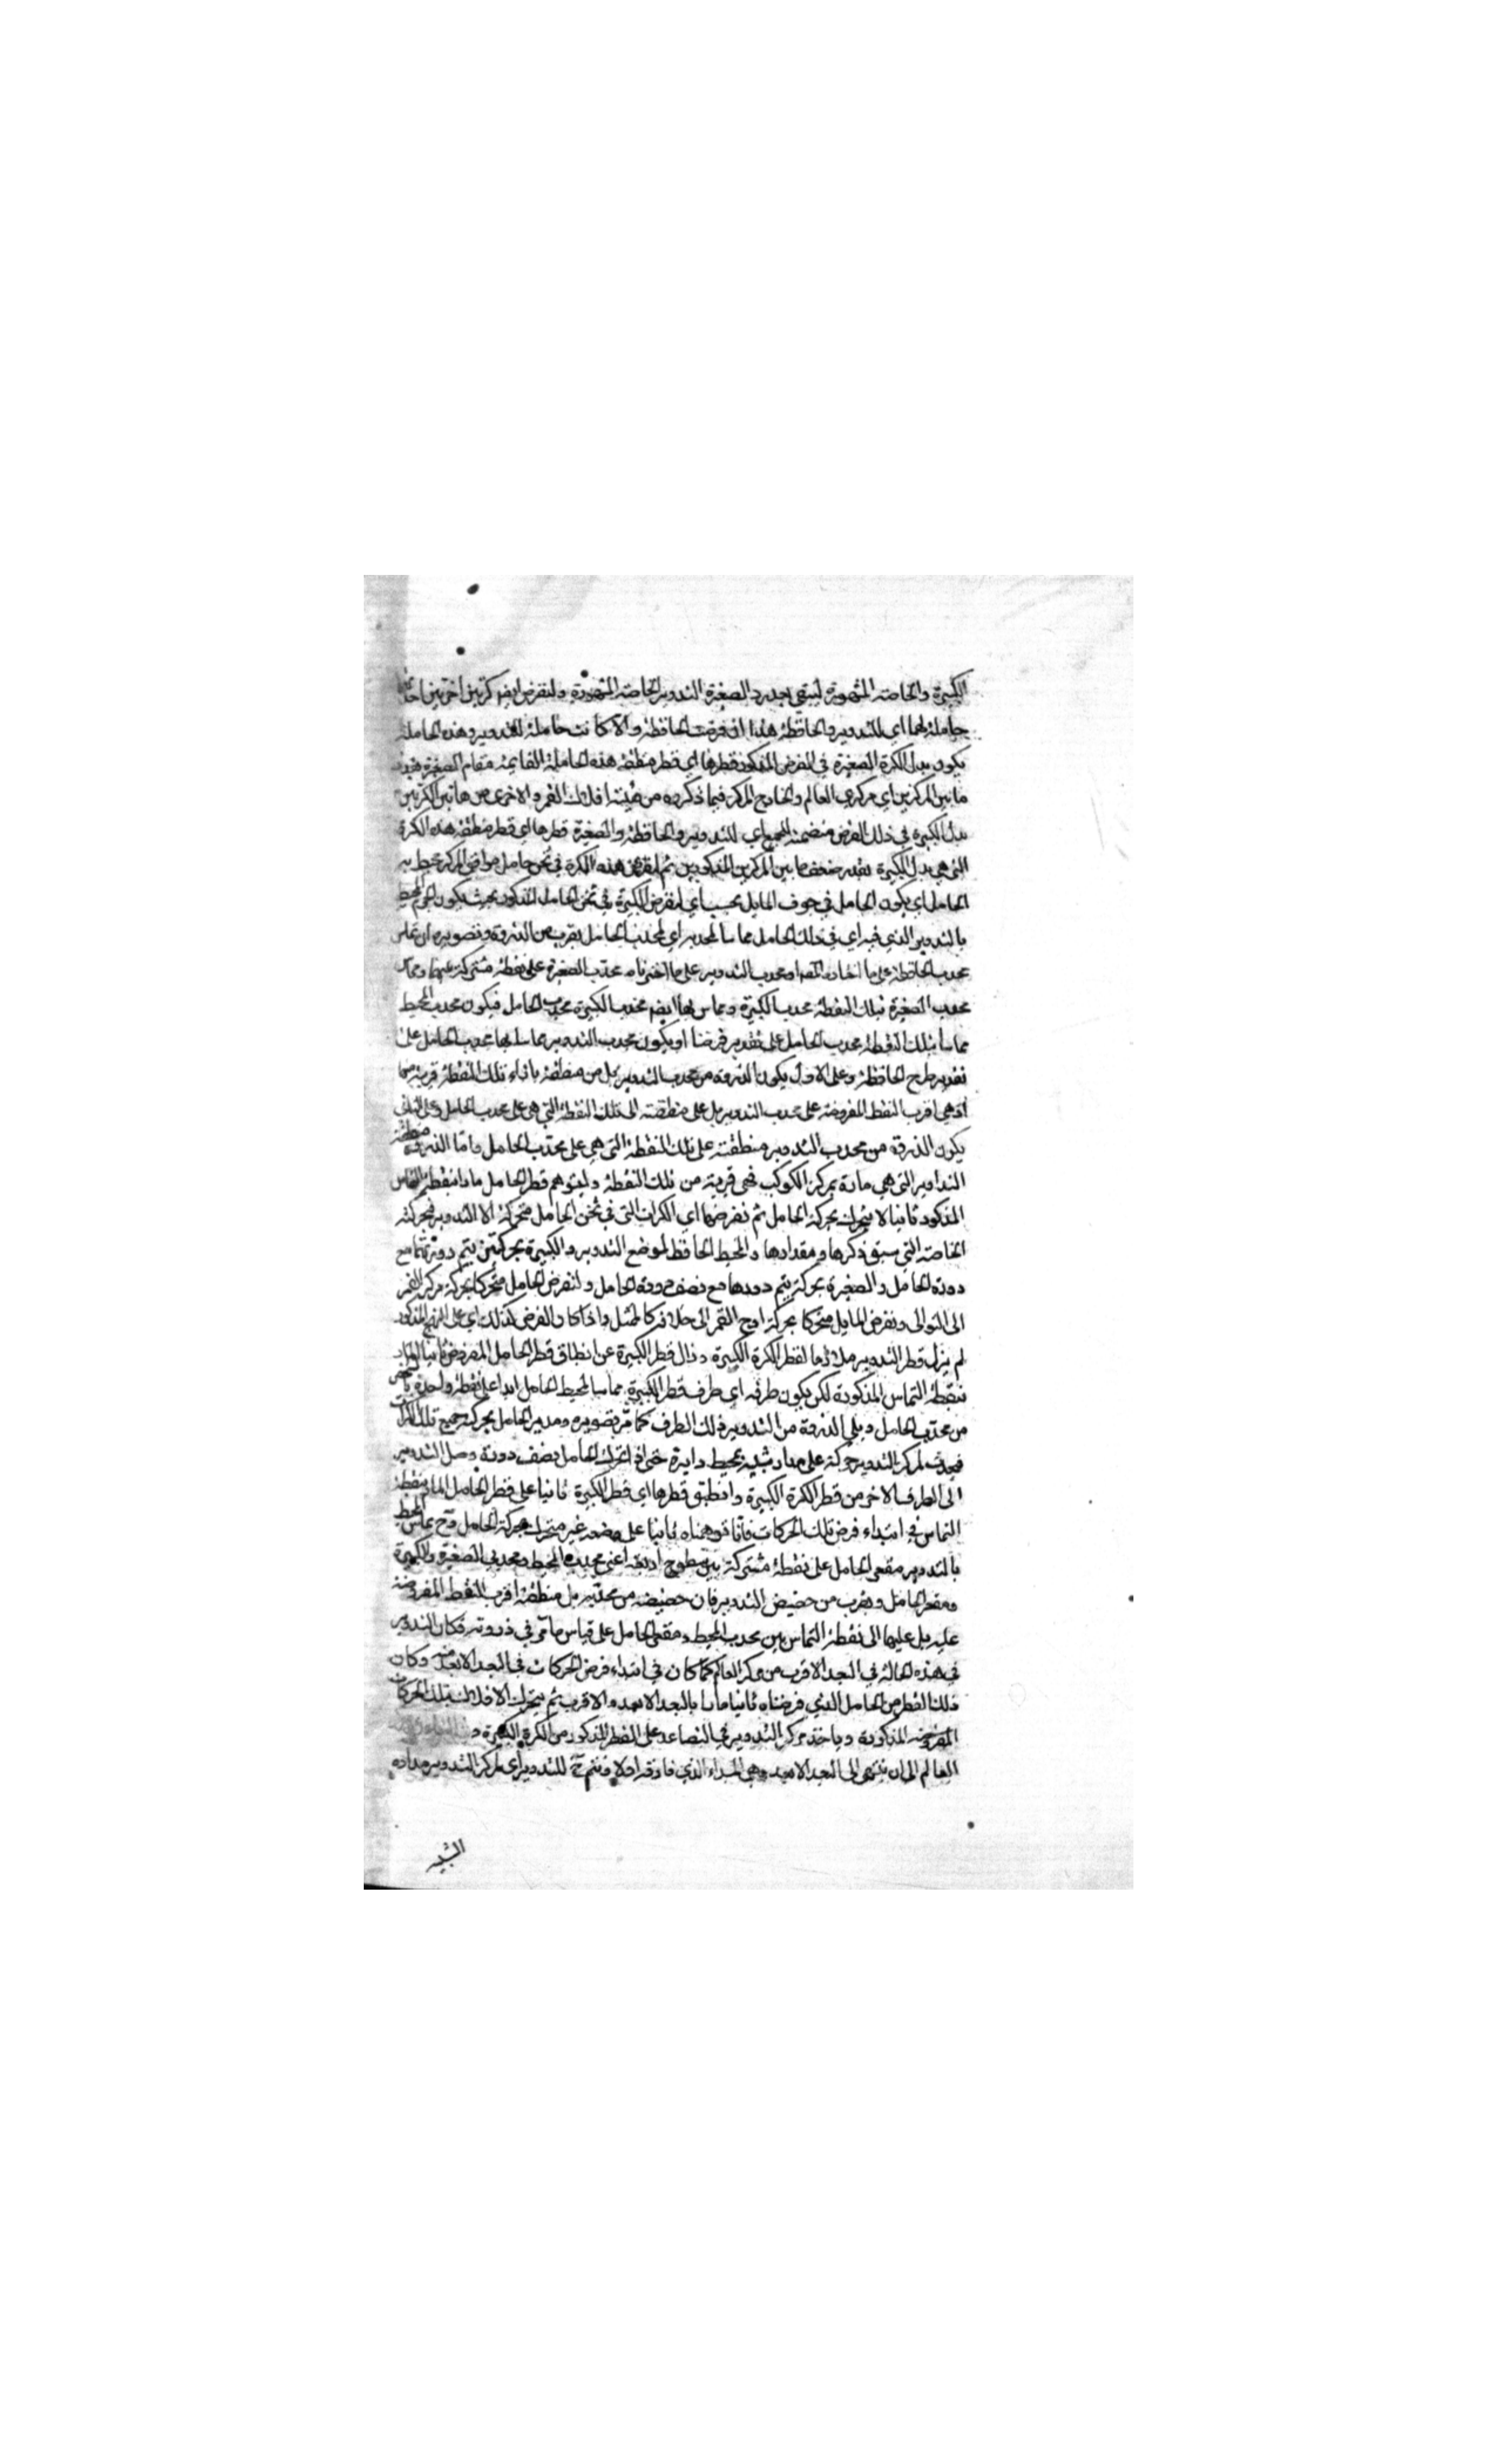 الكبيرة والخاصة المشهورة ليبقى بعد رد الصغيرة التدوير الخاصة المشهورة ولنفرض ايض كرتين اخريين احد
حاملة لهما اي للتدوير والحافظة هذا ان فرضت الحافظة والا كانت حاملة للتدوير وهذه الحاملة
يكون بدل الكرة الصغيرة في الفرض المذكور قطرها اي قطر منطقة هذه الحاملة القايمة مقام الصغيرة بقدر
ما بين المركزين اي مركزي العالم والخارج المركز فيما ذكروه من هيئة افلاك القمر والاخرى من هاتين الكرتين
بدل الكبيرة في ذلك الفرض متضمنة للجميع اي للتدوير والحافظة والصغيرة قطرها اي قطر منطقة هذه الكرة
التي هي بدل الكبيرة بقدر ضعف ما بين المركزين المذكورين ثم لنفرض هذه الكرة في ثخن حامل موافق المركز محيط به
الحامل اي يكون الحامل في جوف المايل بحسب اي لنفرض الكبيرة في ثخن الحامل المذكور بحيث يكون الجرم المحيط
بالتدوير الذي فيه اي في ذلك الحامل مماسا لمحدبه اي لمحدب الحامل بقرب من الذروة وتصويره ان يماس
محدب الحافظة على ما اختاره المص او محدب التدوير على ما اخترناه محدب الصغيرة على نقطة مشتركة بينهما ويماس
محدب الصغيرة بتلك النقطة محدب الكبيرة ويماس بها ايضم محدب الكبيرة محدب الحامل فيكون محدب المحيط
مماسا بتلك النقطة محدب الحامل على تقدير فرضنا او يكون محدب التدوير مماسا بها محدب الحامل على
تقدير طرح الحافظة وعلى الاول يكون الذروة من محدب التدوير بل من منطقة بازاء تلك النقطة قريبة منها
اذ هي اقرب النقط المفروضة على محدب التدوير بل على منطقته الى تلك النقطة التي هي على محدب الحامل وعلى الثاني
يكون الذروة من محدب التدوير منطقته على تلك النقطة التي هي على محدب الحامل واما الذروة منطقة
التداوير التي هي مارة بمركز الكوكب فهي قريبة من تلك النقطة وليتوهم قطر الحامل مارا بنقطة التماس
المذكور ثانيا لا يتحرك بحركة الحامل ثم نفرضها اي الكرات التي في ثخن الحامل متحركة الا التدوير فبحركته
الخاصة التي سبق ذكرها ومقدارها والمحيط الحافظ لموضع التدوير والكبيرة بحركتين يتم دورتهما مع
دورة الحامل والصغيرة بحركة يتم دورها مع نصف دورة الحامل ولنفرض الحامل متحركا بحركة مركز القمر
الى التوالي ونفرض المايل متحركا بحركة اوج القمر الى خلافه كالممثل واذا كان الفرض كذلك اي على النهج المذكور
لم يزل قطر التدوير ملازما لقطر الكرة الكبيرة وزال قطر الكبيرة عن انطباق قطر الحامل المفروض ثانيا المار
بنقطة التماس المذكورة لكن يكون طرفه اي طرف قطر الكبيرة مماسا لمحيط الحامل ابدا على نقطة واحدة
من محدب الحامل ويلي الذروة من التدوير ذلك الطرف كما مر تصويره ومدير الحامل بحركته جميع تلك الكرات
فيحدث لمركز التدوير حركة على مدار شبيه بمحيط دايرة حتى اذا تحرك الحامل نصف دورة وصل التدوير
الى الطرف الاخر من قطر الكرة الكبيرة وانطبق قطرها اي قطر الكبيرة ثانيا على قطر الحامل المار بنقطة
التماس في ابتداء فرض تلك الحركات فانا توهمناه ثانيا على وضعه غير متحرك بحركة الحامل وح يماس المحيط
بالتدوير مقعر الحامل على نقطة مشتركة بين سطوح اربعة اعني محدب المحيط ومحدبي الصغيرة والكبيرة
ومقعر الحامل ويقرب من حضيض التدوير فان حضيضه من محدبه بل منطقة اقرب النقط المفروضة
عليه بل عليها الى نقطة التماس بين محدب المحيط ومقعر الحامل على قياس ما مر في ذروته فكان التدوير
في هذه الحالة في البعد الاقرب من مركز العالم كما كان في ابتداء فرض الحركات في البعد الابعد منه وكان
ذلك القطر من الحامل الذي فرضناه ثانيا مارا بالبعد الابعد والاقرب ثم يتحرك الافلاك بتلك الحركات
المفروضة المذكورة وياخذ مركز التدوير في التصاعد على القطر المذكور من الكرة الكبيرة
العالم الى ان ينتهي الى البعد الابعد وهي المبداء الذي فارقه اولا فيتم ح للتدوير اي لمركز التدوير مداره
الشبيه